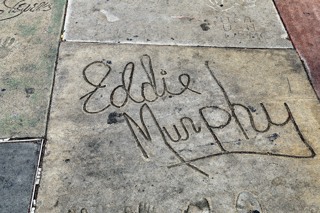 Eddie
Murphy